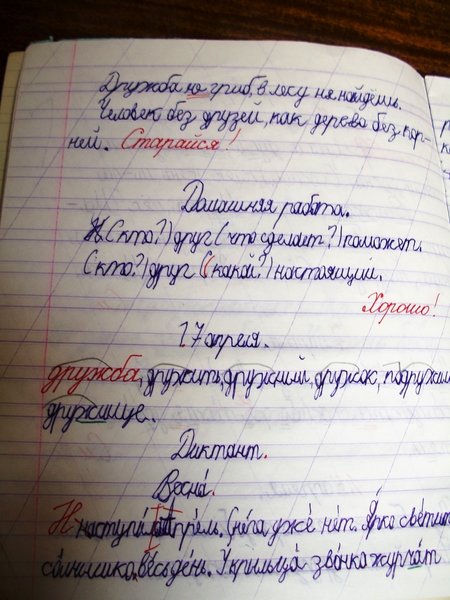 Дружба не гриб, в лесу не найдёшь.
Человек без друзей, как дерево без кор-
ней. Старайся!
Домашняя работа.
(кто?) друг (что сделает?) поможет.
(кто?) друг (какой?) настоящий.
Хорошо!
17 апреля.
дружба, дружить, дружный, дружок, подружил
дружище.
Диктант.
Весна.
Н наступил апрель. Снега уже нет. Ярко светит
солнышко весь день. У крыльца звонко журчат